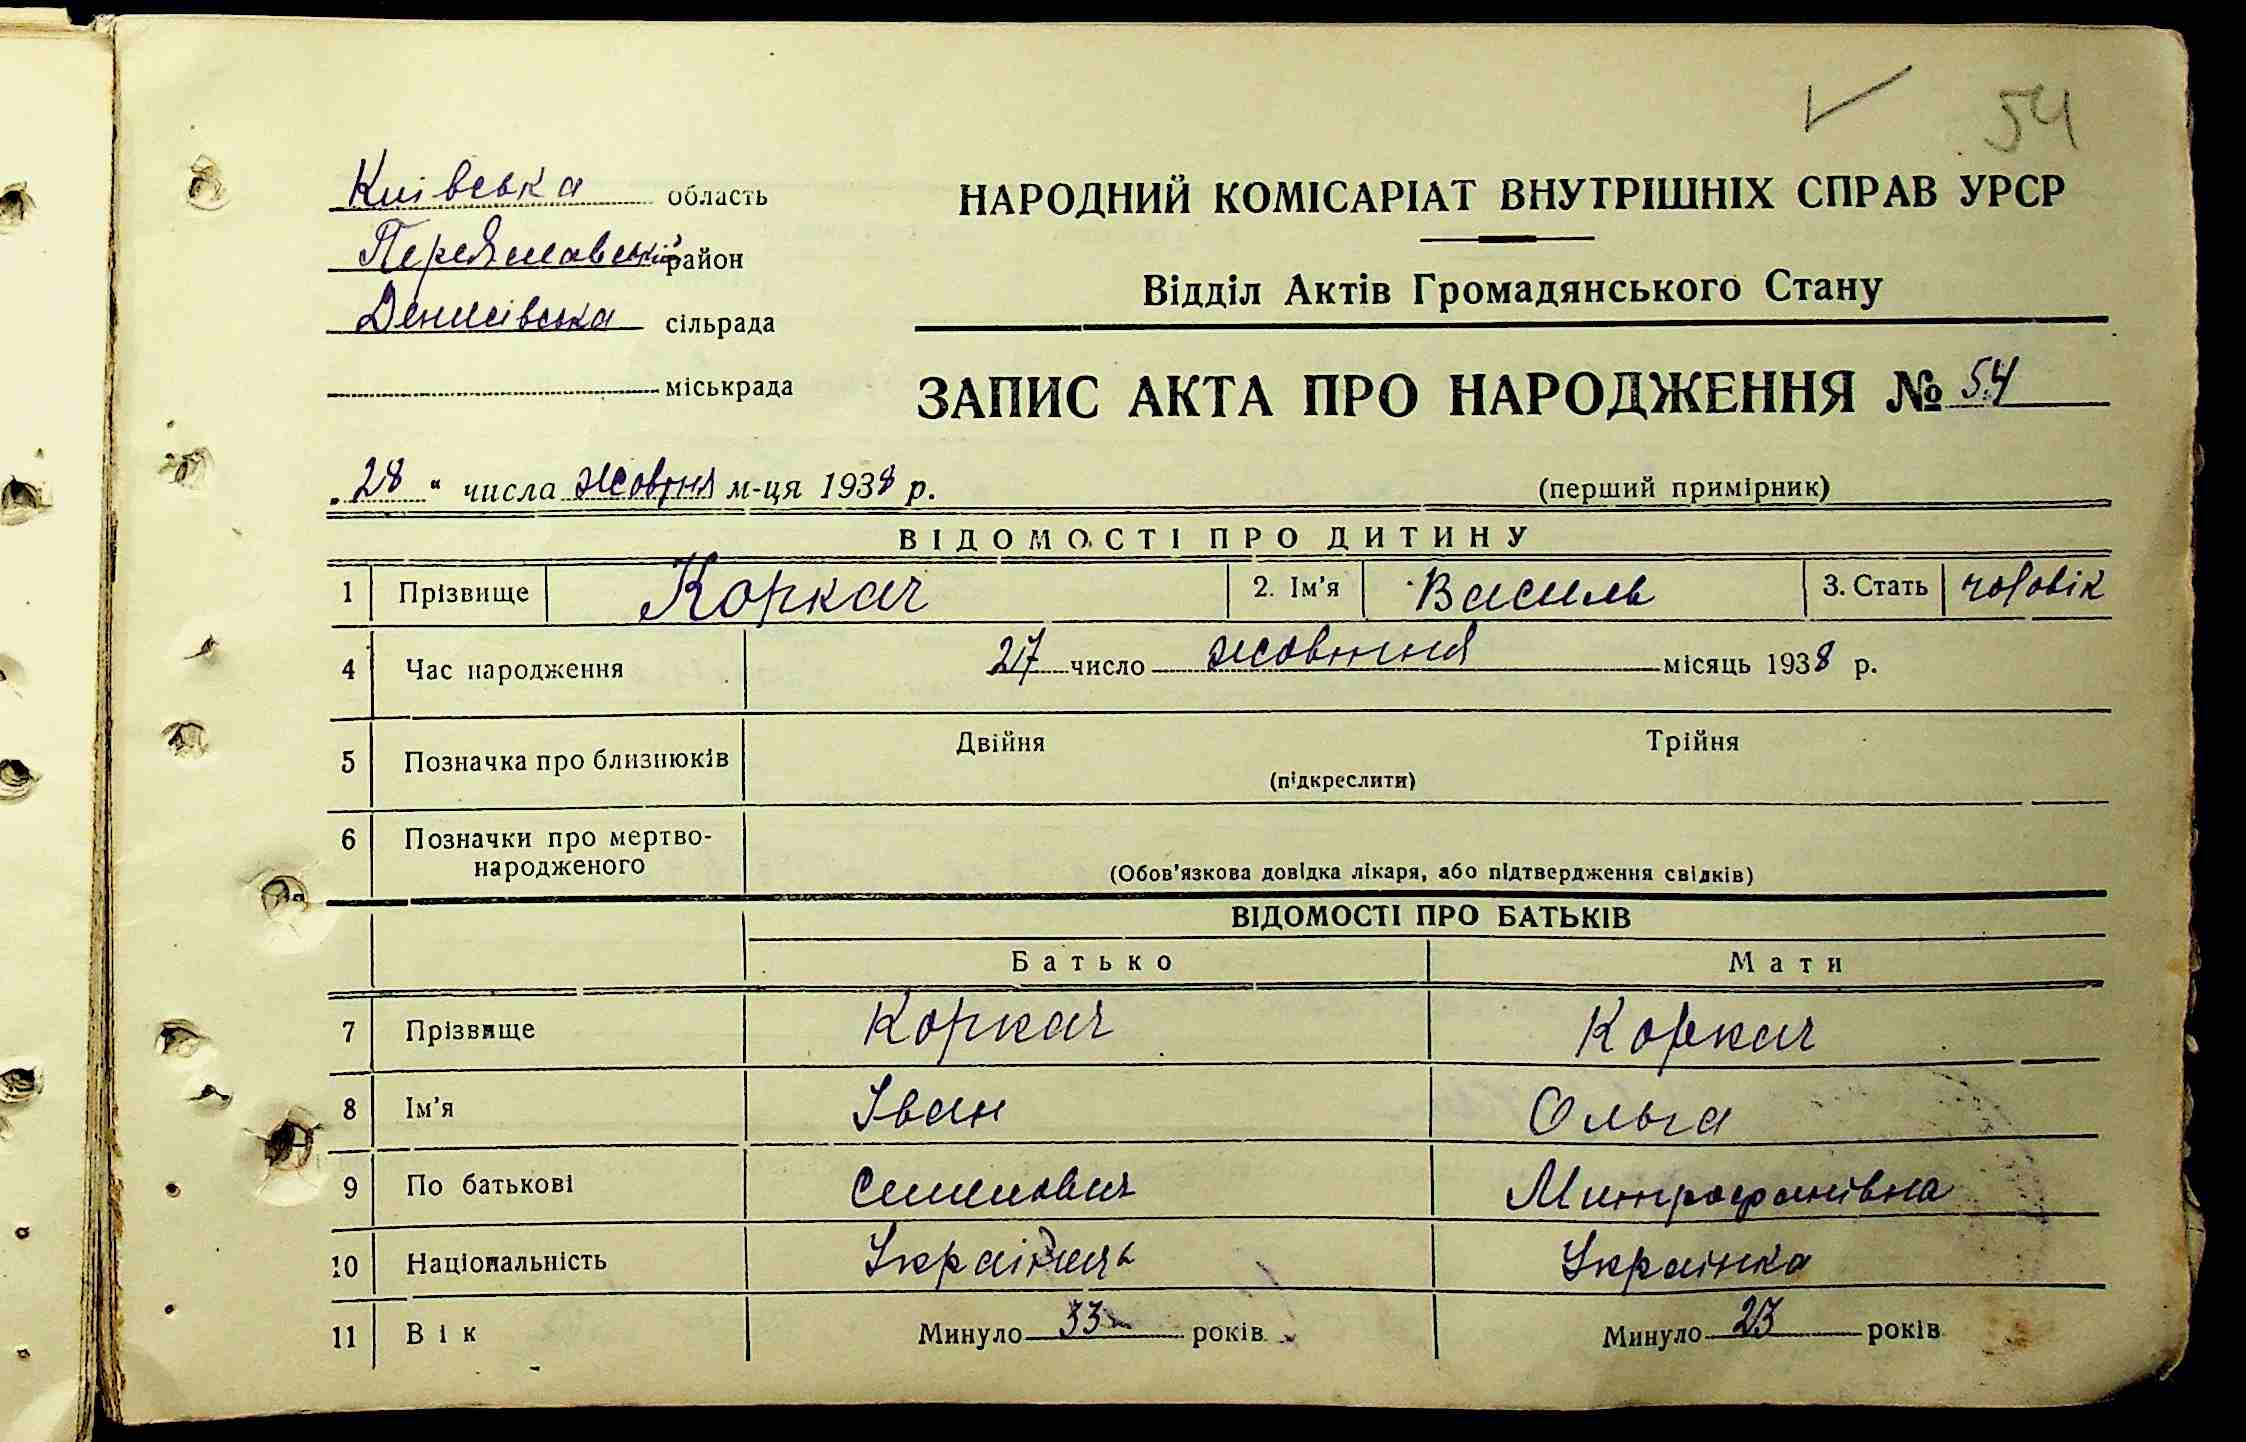 54
Київська область
Переяславський район
Денисівська сільрада
міськрада
НАРОДНИЙ КОМІСАРІАТ ВНУТРІШНІХ СПРАВ УРСР
Відділ Актів Громадянського Стану
ЗАПИС АКТА ПРО НАРОДЖЕННЯ № 54
„28“ числа жовтня м-ця 1938 р.
(перший примірник)
ВІДОМОСТІ ПРО ДИТИНУ
1 Прізвище Коркач 2. Ім'я Василь 3. Стать чоловік
4 Час народження 27 число жовтня місяць 1938 р.
5 Позначка про близнюків Двійня Трійня
(підкреслити)
6 Позначки про мертво-
народженого
(Обов'язкова довідка лікаря, або підтвердження свідків)
ВІДОМОСТІ ПРО БАТЬКІВ
Батько Мати
7 Прізвище Коркач Коркач
8 Ім'я Іван Ольга
9 По батькові Семенович Митрофанівна
10 Національність Українець Українка
11 Вік Минуло 33 років Минуло 23 років